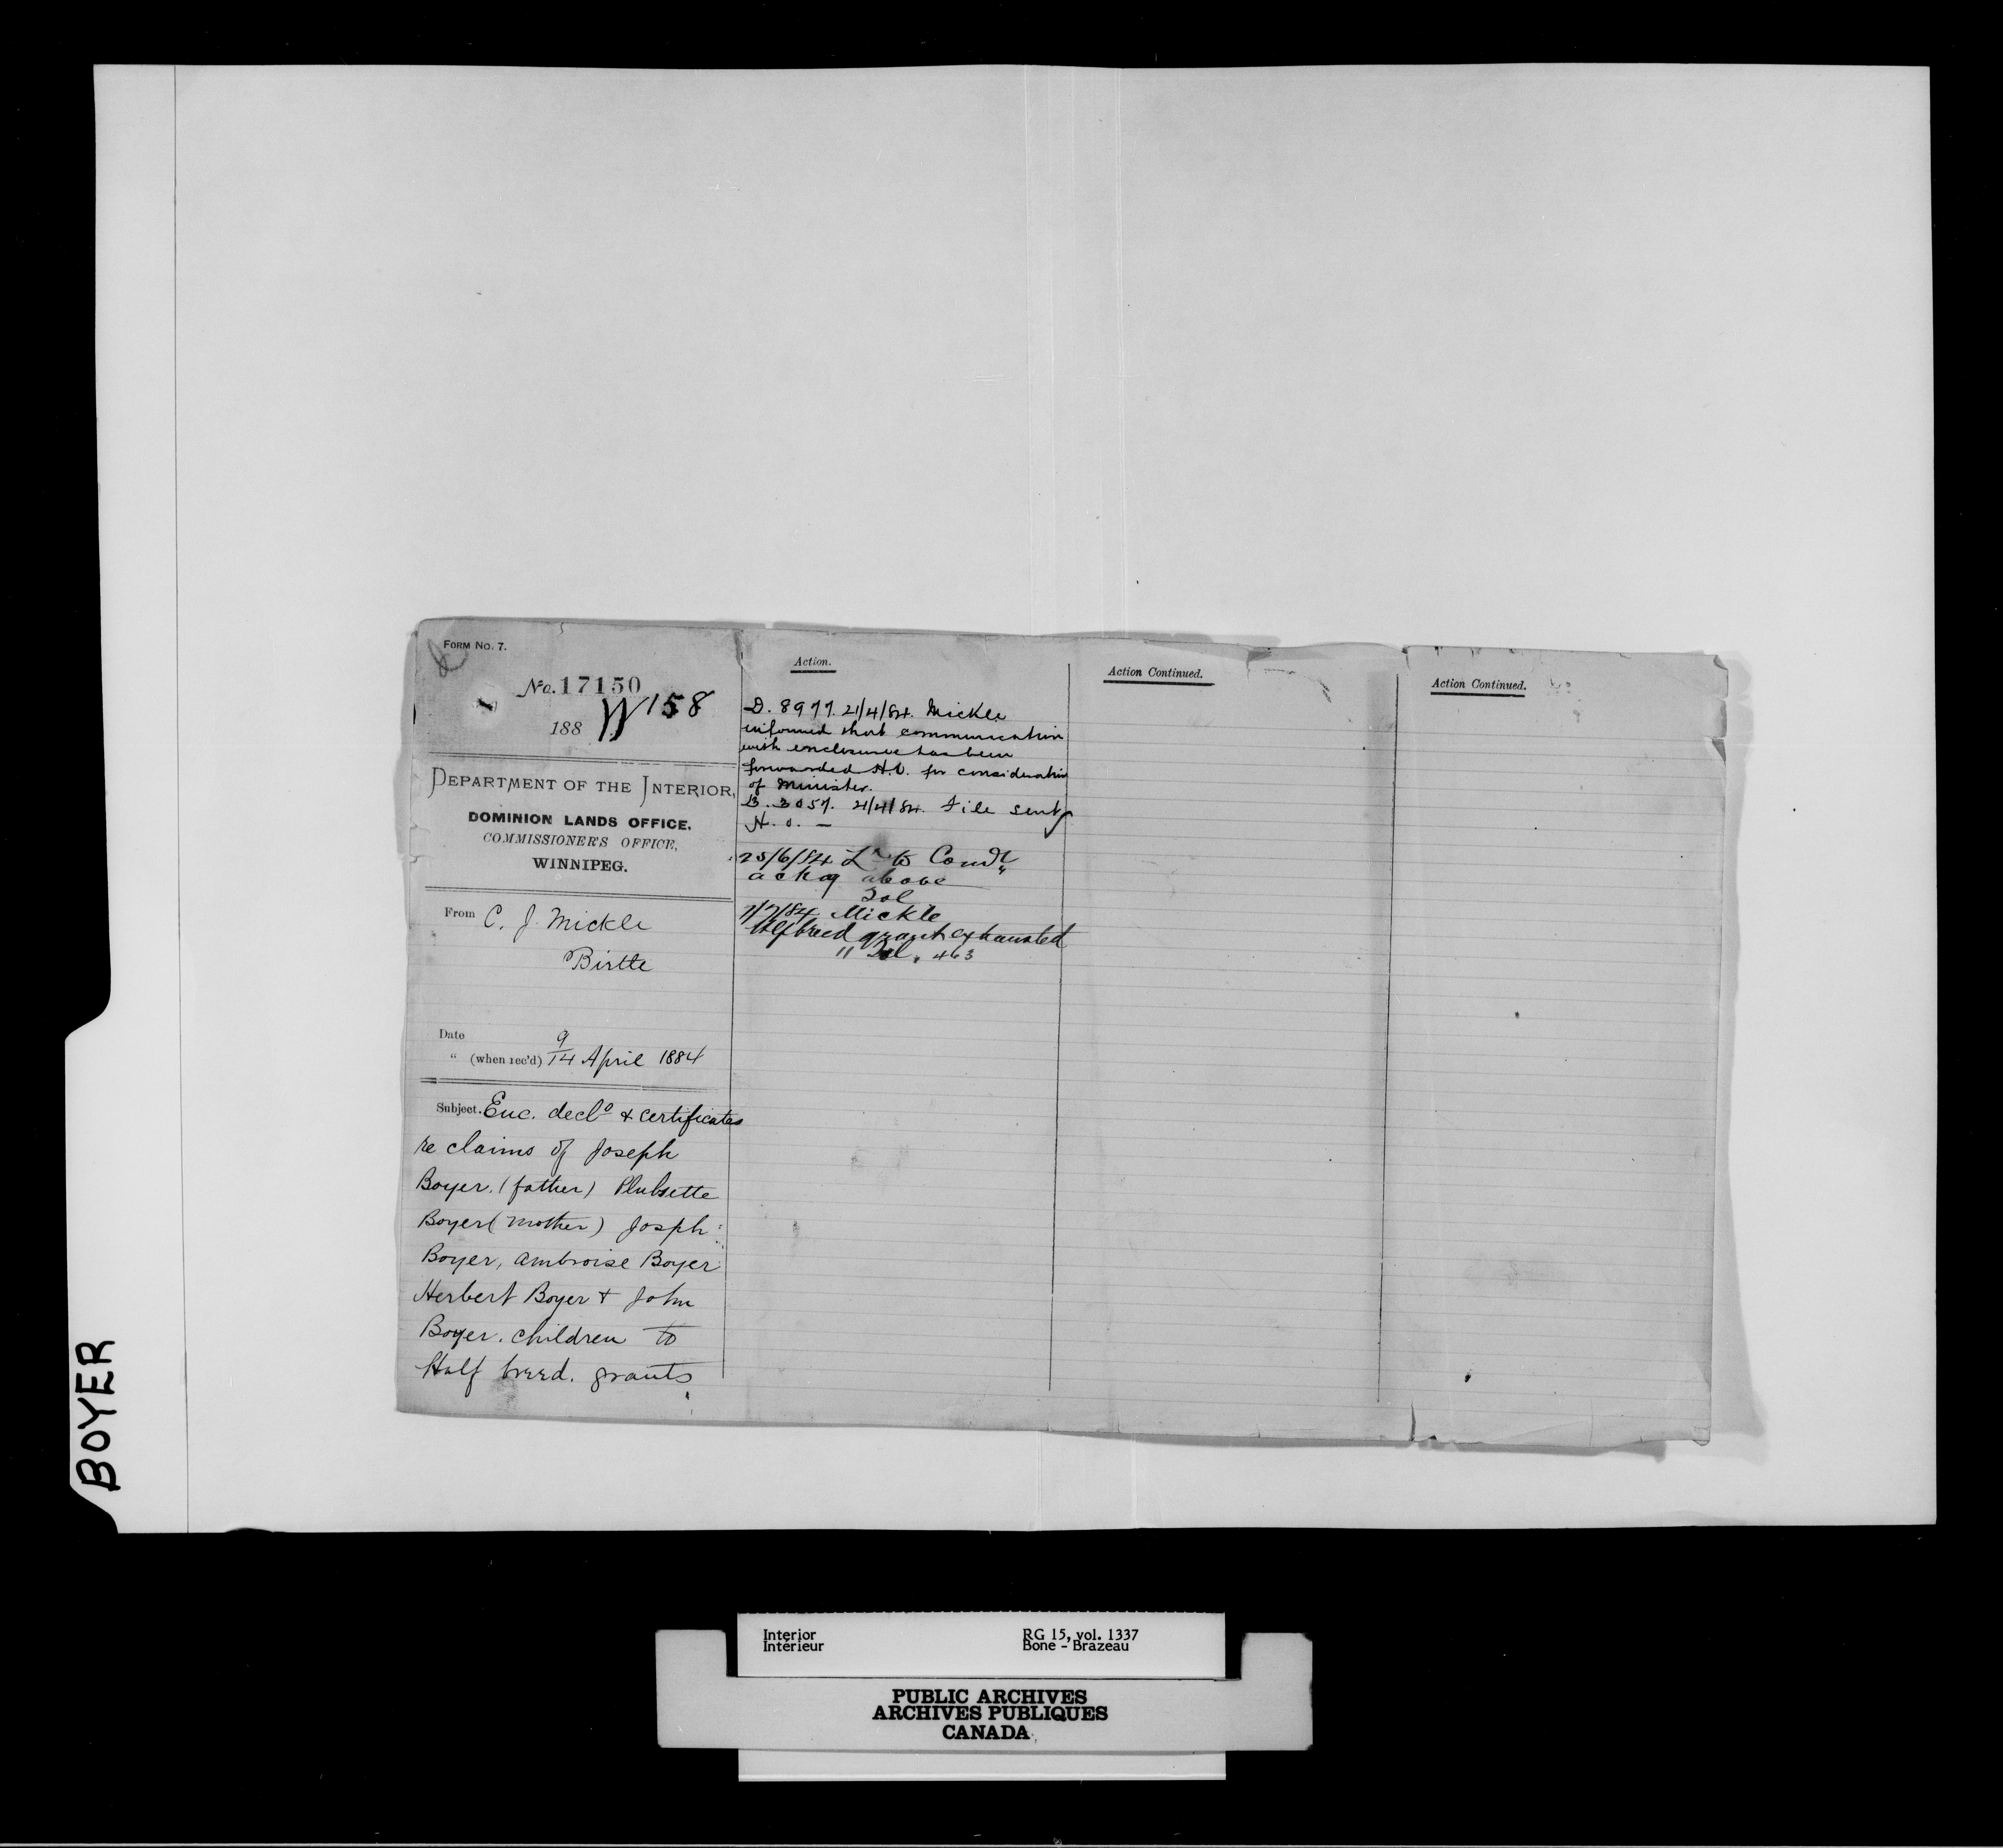 FORM NO. 7.
No. 17150
188 W158
DEPARTMENT OF THE INTERIOR,
DOMINION LANDS OFFICE,
COMMISSIONER'S OFFICE,
WINNIPEG.
From C. J. Mickle
Birtle
Date 9
" (when rec'd) 14 April 1884
Subject. Enc. decl⁰ & certificates
re claims of Joseph
Boyer. (father)
Boyer (mother) Josph
Boyer, Ambroise Boyer
Herbert Boyer + John
Boyer. children to
Half breed. grants
Action.
D. 8977. 21/4/84. Mickle
informed that communication
with enclosures has been
forwarded H.O. for consideration
of Minister.
B. 3057. 21/4/84. File sent
H. O. —
25/6/84 Lr to
ackg above
Sol
7/7/84 Mickle
Hlfbreed grant exhausted
" Sol, 463
Action Continued.
Action Continued.
BOYER
Interior RG 15, vol. 1337
Intérieur Bone - Brazeau
PUBLIC ARCHIVES
ARCHIVES PUBLIQUES
CANADA